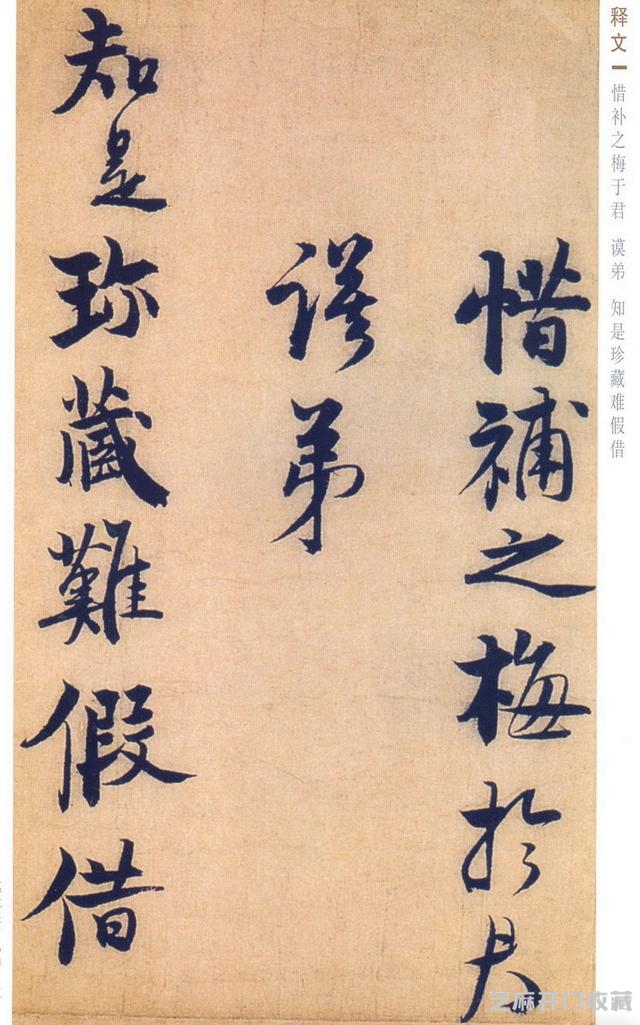 释文一 惜补之梅于君 谟弟 知是珍藏难假借
惜補之梅於君
謨弟
知是珍藏難假借
芝麻开门收藏